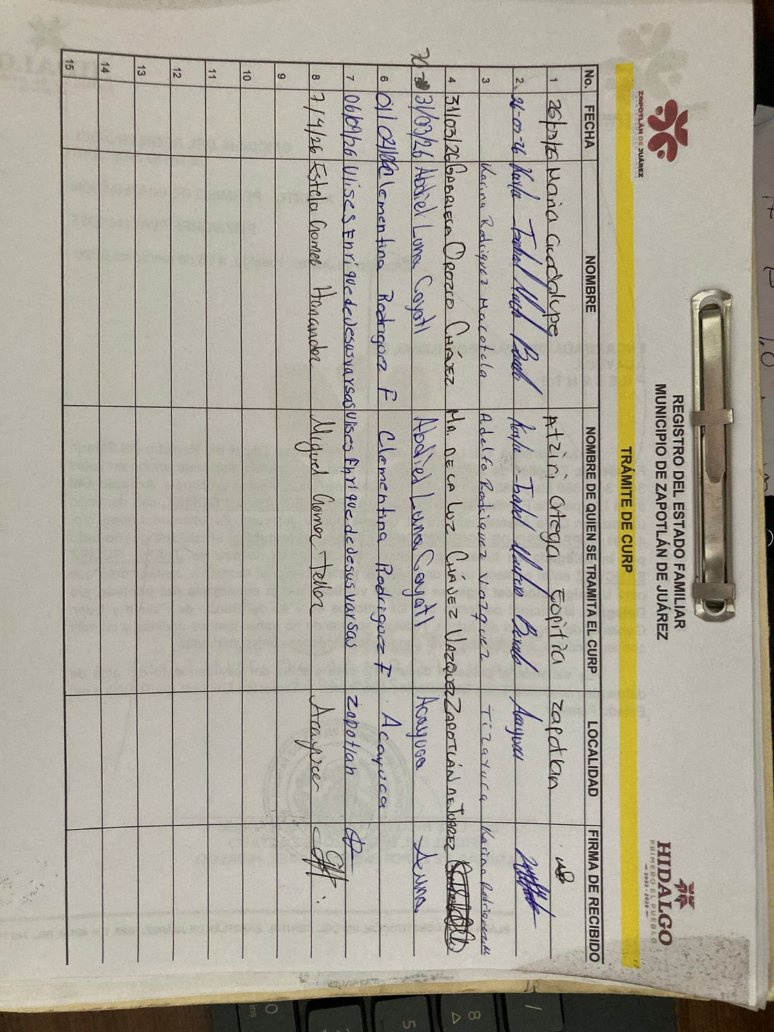 ZAPOTLÁN DE JUÁREZ
REGISTRO DEL ESTADO FAMILIAR
MUNICIPIO DE ZAPOTLÁN DE JUÁREZ
HIDALGO
PRIMERO EL PUEBLO
2022 - 2028
TRÁMITE DE CURP
No. FECHA NOMBRE NOMBRE DE QUIEN SE TRAMITA EL CURP LOCALIDAD FIRMA DE RECIBIDO
1 Maria Guadalupe Atziri Ortega Espitia zapotlan
2. Karla Isabel Karla Isabel
3 Karina Rodriguez Macotela Adelfo Rodriguez Vazquez Tizayuca Karina Rodriguez M
4 31/03/26 GABRIELA OROZCO CHÁVEZ MA. DE LA LUZ CHÁVEZ VAZQUEZ ZAPOTLÁN DE JUAREZ
31/03/26 Abdiel Luna Coyotl Abdiel Luna Coyotl Acayuca
6 01/04/26 Clementina Rodriguez F Clementina Rodriguez F. Acayuca
7 06/04/26 Ulises Enrique de Jesus vargas Ulises Enrique de Jesus vargas zapotlan
8 7/4/26 Estela Gomez Hernandez Miguel Gomez Tellez Acayuca
9
10
11
12
13
14
15